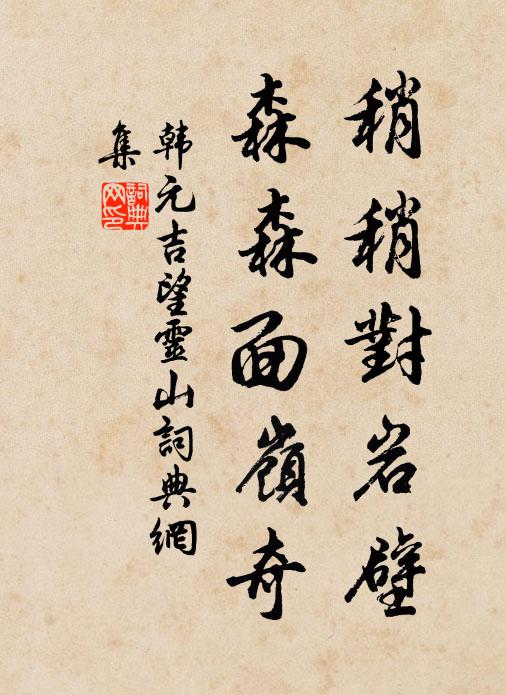 稍稍對岩壁
森森面嶺奇
韩元吉望靈山詞典網
集
詞典網印